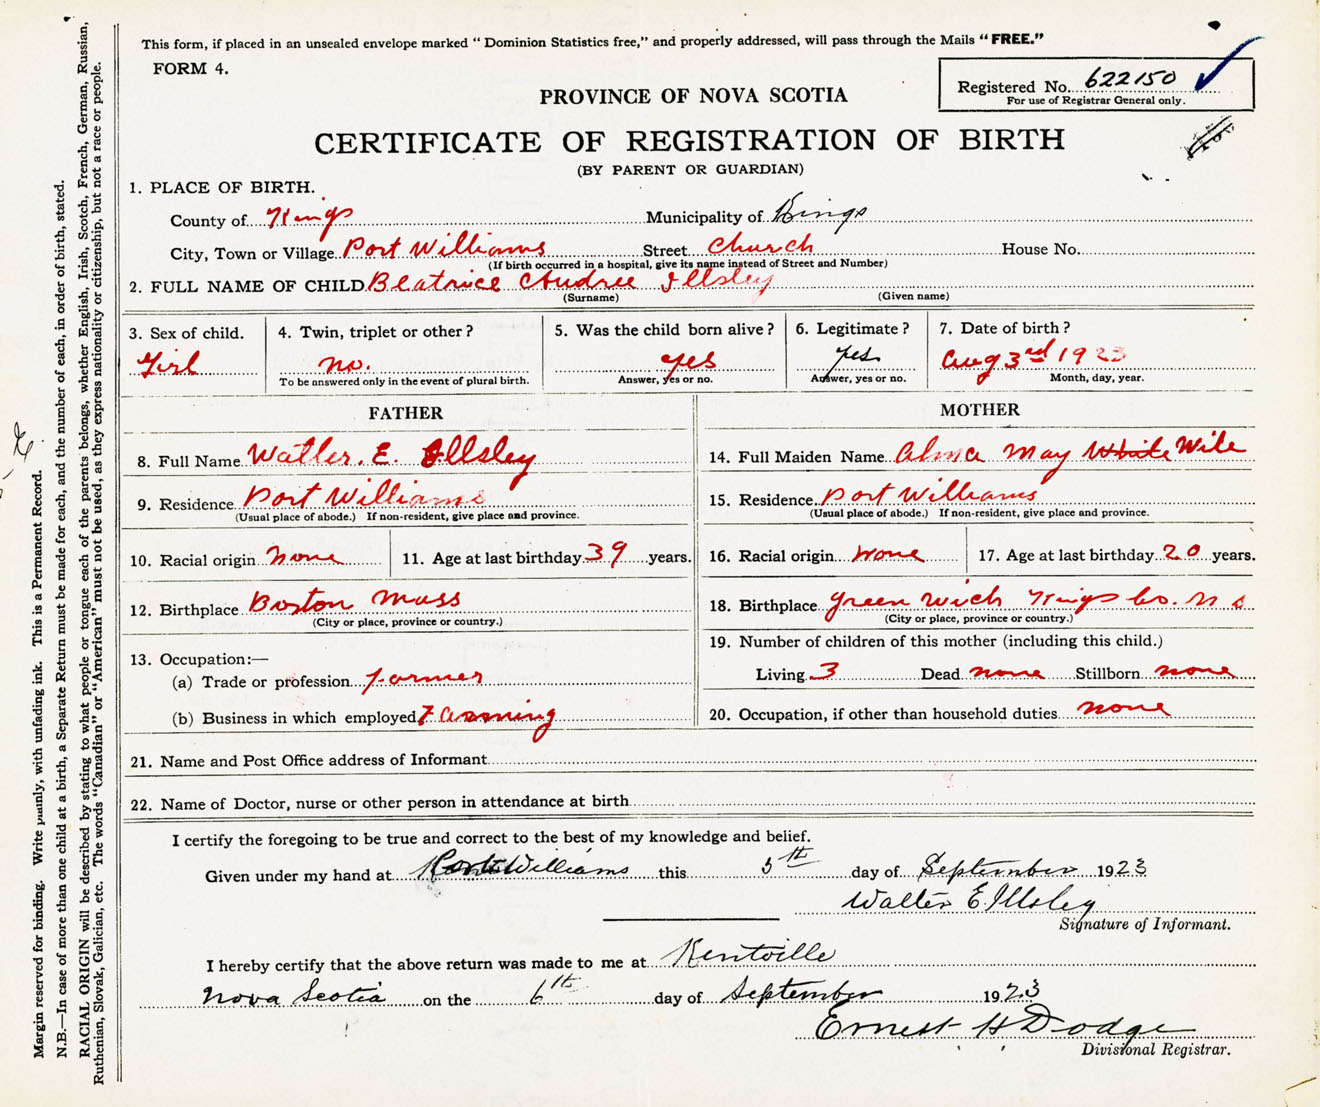 This form, if placed in an unsealed envelope marked "Dominion Statistics free," and properly addressed, will pass through the Mails "FREE."
FORM 4.
Registered No. 622150
For use of Registrar General only.
PROVINCE OF NOVA SCOTIA
CERTIFICATE OF REGISTRATION OF BIRTH
(BY PARENT OR GUARDIAN)
1. PLACE OF BIRTH.
County of Kings Municipality of Kings
City, Town or Village Port Williams Street Church House No.
(If birth occurred in a hospital, give its name instead of Street and Number)
2. FULL NAME OF CHILD Beatrice Audree Illsley
(Surname) (Given name)
3. Sex of child. 4. Twin, triplet or other? 5. Was the child born alive? 6. Legitimate? 7. Date of birth?
Girl no. yes yes Aug 3rd 1923
To be answered only in the event of plural birth. Answer, yes or no. Answer, yes or no. Month, day, year.
FATHER MOTHER
8. Full Name Walter. E. Illsley 14. Full Maiden Name Alma May White Wile
9. Residence Port Williams 15. Residence Port Williams
(Usual place of abode.) If non-resident, give place and province. (Usual place of abode.) If non-resident, give place and province.
10. Racial origin none 11. Age at last birthday 39 years. 16. Racial origin none 17. Age at last birthday 20 years.
12. Birthplace Boston Mass 18. Birthplace Green Wich Kings Co. N S
(City or place, province or country.) (City or place, province or country.)
19. Number of children of this mother (including this child.)
13. Occupation:—
(a) Trade or profession Farmer Living 3 Dead none Stillborn none
(b) Business in which employed Farming 20. Occupation, if other than household duties none
21. Name and Post Office address of Informant
22. Name of Doctor, nurse or other person in attendance at birth
I certify the foregoing to be true and correct to the best of my knowledge and belief.
Given under my hand at Port Williams this 5th day of September 1923
Walter E. Illsley
Signature of Informant.
I hereby certify that the above return was made to me at Kentville
Nova Scotia on the 6th day of September 1923
Ernest H Dodge
Divisional Registrar.
Margin reserved for binding. Write plainly, with unfading ink. This is a Permanent Record.
N.B.—In case of more than one child at a birth, a Separate Return must be made for each, and the number of each, in order of birth, stated.
RACIAL ORIGIN will be described by stating to what people or tongue each of the parents belongs, whether English, Irish, Scotch, French, German, Russian,
Ruthenian, Slovak, Galician, etc. The words "Canadian" or "American" must not be used, as they express nationality or citizenship, but not a race or people.